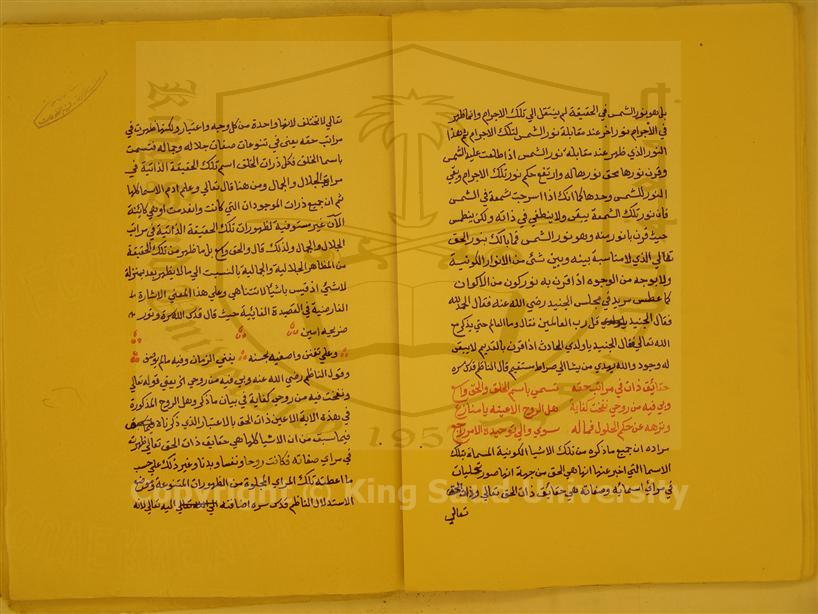 بل هو نور الشمس في الحقيقة لم ينتقل الى تلك الاجرام وانما ظهر
في الأجرام نور اخر عند مقابلة نور الشمس لتلك الاجرام ثم هذا
النور الذي ظهر عند مقابلة نور الشمس اذا طلعت عليه الشمس
وقرن نورها محق نورها له وارتفع حكم نور تلك الاجرام وبقي
النور للشمس وحدها كما انك اذا اسرجت شمعة في الشمس
فان نور تلك الشمعة يبقى ولا ينطفي في ذاته ولكن ينطمس
حيث قرن بانور منه وهو نور الشمس فما بالك بنور الحق
تعالى الذي لا مناسبة بينه وبين شئ من الانوار الكونية
ولا بوجه من الوجوه اذا قرن به نور كون من الاكوان
كما عطس مريد في مجلس الجنيد رضي الله عنه فقال الحمد لله
فقال الجنيد قل رب العالمين فقال وما العالم حتى يذكر مع
الله تعالى فقال الجنيد يا ولدي الحادث اذا قرن بالقديم لا يبقى
له وجود والله يهدي من يشا الى صراط مستقيم قال الناظم قدس سره
حقايق ذات في مراتب حقه تسمى باسم الخلق والحق واسع
وفي فيه من روحي نفخت كفاية هل الروح الا عينه يا منازع
ونزهه عن حكم الحلول فما له سوى والى توحيده الامر راجع
مراده ان جميع ما ذكره من تلك الاشيا الكونية المسماة بتلك
الاسما التي اخبر عنها انها هي الحق من جهة انها صور تجليات
في مراي اسمائه وصفاته هي حقايق ذات الحق تعالى وذات الحق
تعالى
تعالى لا تختلف لانها واحدة من كل وجه واعتبار ولكنها ظهرت في
مراتب حقه يعني في تنوعات صفات جلاله وجماله فتسمت
باسما الخلق فكل ذرات الخلق اسم تلك الحقيقة الذاتية في
مراتب الجلال والجمال ومن هنا قال تعالى وعلم ادم الاسما كلها
ثم ان جميع ذرات الموجودات التي كانت وانعدمت او هي كائنة
الآن غير مستوفية لظهورات تلك الحقيقة الذاتية في مراتب
الجلال والجمال ولذلك قال والحق واسع بل ما ظهر من تلك الحقيقة
من المظاهر الجلالية والجمالية بالنسبة الى ما لا يظهر بعد بمنزلة
لا شئ اذ قيس باشيا لا تتناهى وعلى هذا المعنى الاشارة
الفارضية في القصيدة الفائية حيث قال قدس الله سره ونور
ضريحه امين
وعلى تفنن واصفيه بحسنه يفنى الزمان وفيه ما لم يوصف
وقول الناظم رضي الله عنه وفي فيه من روحي اي يعني قوله تعالى
ونفخت فيه من روحي كفاية في بيان ما ذكر وهل الروح المذكورة
في هذه الاية الا عين ذات الحق بالاعتبار الذي ذكرناه
فيما سبق من ان الاشيا كلها هي حقايق ذات الحق تعالى ظهرت
في مراي صفاته فكانت روحا ونفسا وبدنا وغير ذلك على حسب
ما اعطته تلك المراي المجلوة من الظهورات المتنوعة وموضع
الاستدلال الناظم قدس سره اضافته اليه تعالى لانه